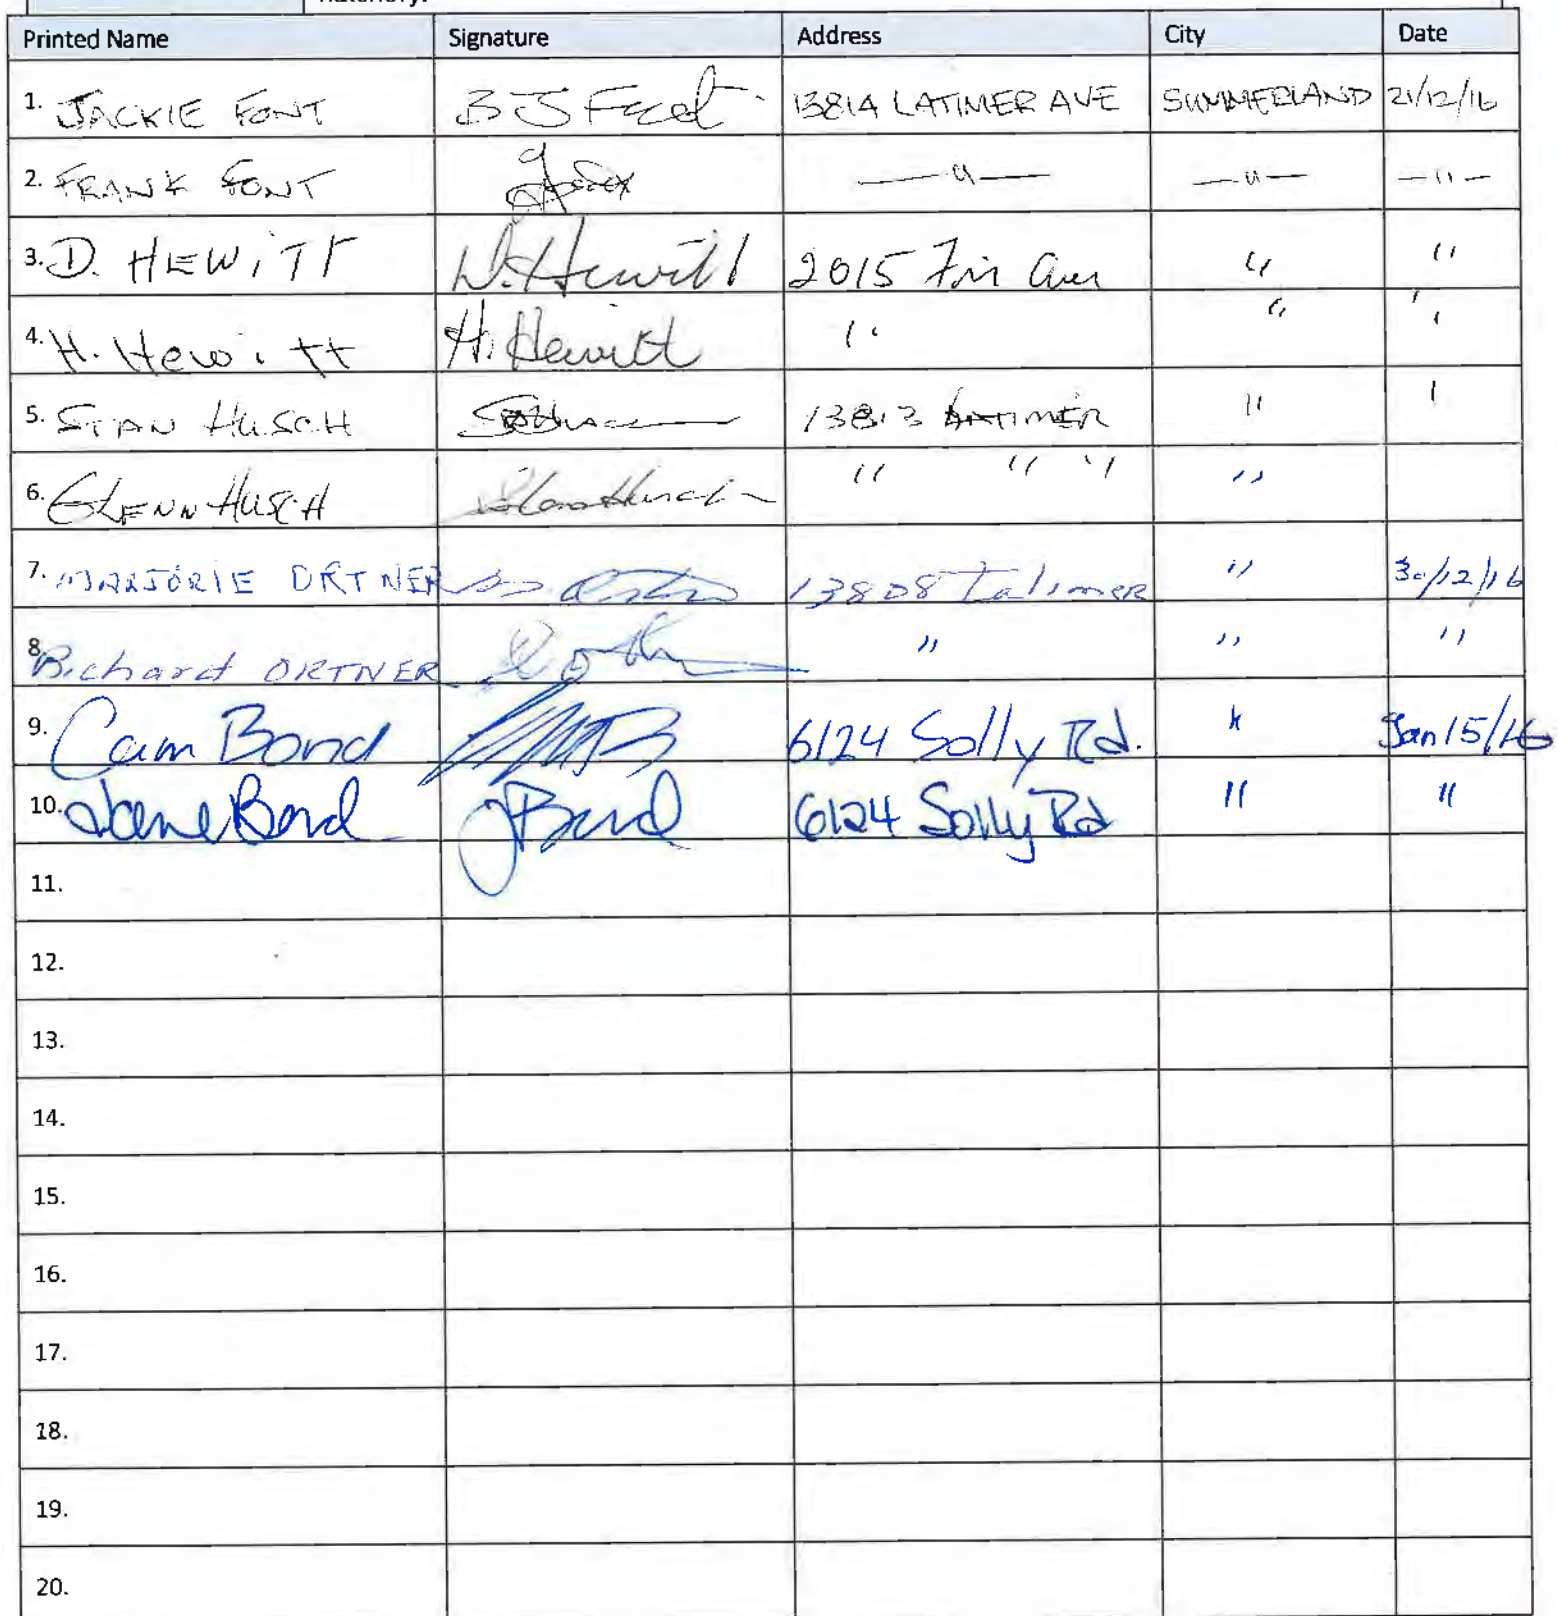 Printed Name Signature Address City Date
1. JACKIE FONT B J Font 13814 LATIMER AVE SUMMERLAND 21/12/16
2. FRANK FONT —"— —"— —"—
3. D. HEWITT D. Hewitt 2015 Fir Ave " "
4. H. Hewitt H. Hewitt " " "
5. STAN HUSCH 13813 LATIMER " "
6. GLENN HUSCH " " " "
7. MARJORIE ORTNER 13808 Latimer " 30/12/16
8. Richard ORTNER " " "
9. Cam Bond 6124 Solly Rd. " Jan 15/16
10. Jane Bond J Bond 6124 Solly Rd " "
11.
12.
13.
14.
15.
16.
17.
18.
19.
20.